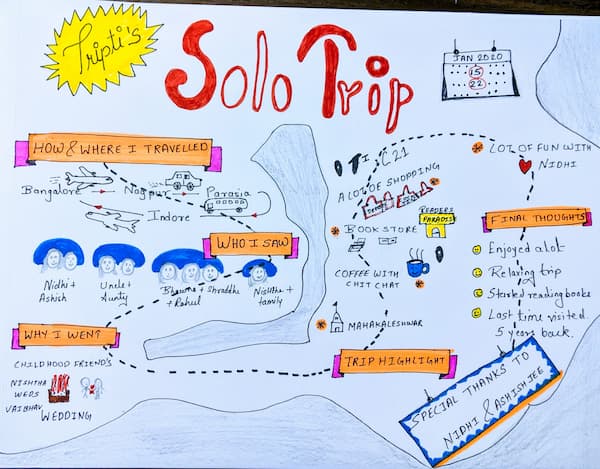 Tripti's
Solo Trip
JAN 2020
15
22
HOW & WHERE I TRAVELLED
Bangalore
Nagpur
Parasia
Indore
WHO I SAW
Nidhi +
Ashish
Uncle +
Aunty
Bhawna + Shraddha
+ Rahul
Nishtha +
family
WHY I WENT?
CHILDHOOD FRIEND'S
NISHTHA
WEDS
VAIBHAV
WEDDING
TRIP HIGHLIGHT
MAHAKALESHWAR
COFFEE WITH
CHIT CHAT
BOOK STORE
READERS
PARADISE
A LOT OF SHOPPING
C21
LOT OF FUN WITH
NIDHI
FINAL THOUGHTS
Enjoyed alot
Relaxing trip
Started reading books
Last time visited
5 years back.
SPECIAL THANKS TO
NIDHI & ASHISH JEE